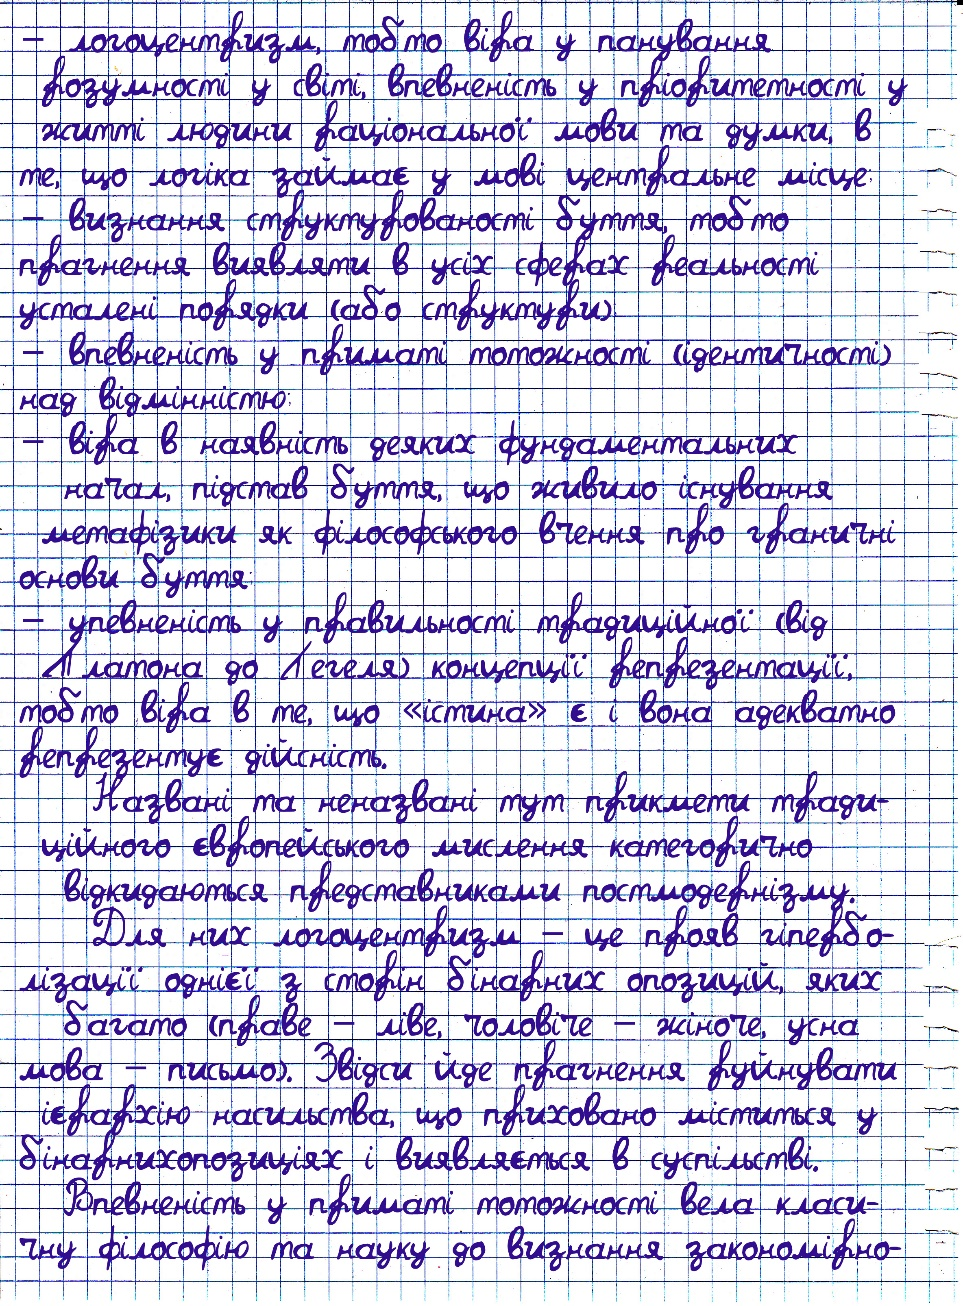 – логоцентризм, тобто віра у панування
розумності у світі, впевненість у пріоритетності у
житті людини раціональної мови та думки, в
те, що логіка займає у мові центральне місце;
– визнання структурованості буття, тобто
прагнення виявляти в усіх сферах реальності
усталені порядки (або структури);
– впевненість у приматі тотожності (ідентичності)
над відмінністю;
– віра в наявність деяких фундаментальних
начал, підстав буття, що живило існування
метафізики як філософського вчення про граничні
основи буття;
– упевненість у правильності традиційної (від
Платона до Гегеля) концепції репрезентації,
тобто віра в те, що «істина» є і вона адекватно
репрезентує дійсність.
Названі та неназвані тут прикмети тради-
ційного європейського мислення категорично
відкидаються представниками постмодернізму.
Для них логоцентризм – це прояв гіпербо-
лізації однієї з сторін бінарних опозицій, яких
багато (праве – ліве, чоловіче – жіноче, усна
мова – письмо). Звідси йде прагнення руйнувати
ієрархію насильства, що приховано міститься у
бінарнихопозиціях і виявляється в суспільстві.
Впевненість у приматі тотожності вела класи-
чну філософію та науку до визнання закономірно-